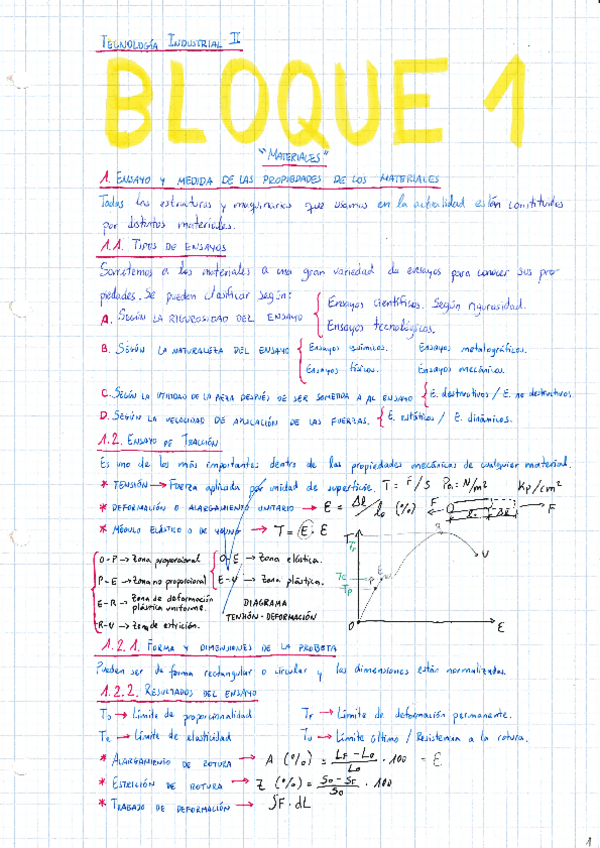 TECNOLOGÍA INDUSTRIAL II
BLOQUE 1
"MATERIALES"
1. ENSAYO Y MEDIDA DE LAS PROPIEDADES DE LOS MATERIALES
Todas las estructuras y maquinarias que usamos en la actualidad están constituidas
por distintos materiales.
1.1. TIPOS DE ENSAYOS
Sometemos a los materiales a una gran variedad de ensayos para conocer sus pro-
piedades. Se pueden clasificar según:
A. SEGÚN LA RIGUROSIDAD DEL ENSAYO { Ensayos científicos. Según rigurosidad.
Ensayos tecnológicos.
B. SEGÚN LA NATURALEZA DEL ENSAYO { Ensayos químicos. Ensayos metalográficos.
Ensayos físicos. Ensayos mecánicos.
C. SEGÚN LA UTILIDAD DE LA PIEZA DESPUÉS DE SER SOMETIDA A AL ENSAYO { E. destructivos / E. no destructivos.
D. SEGÚN LA VELOCIDAD DE APLICACIÓN DE LAS FUERZAS. { E. estáticos / E. dinámicos.
1.2. ENSAYO DE TRACCIÓN
Es uno de los más importantes dentro de las propiedades mecánicas de cualquier material.
* TENSIÓN → Fuerza aplicada por unidad de superficie. T = F/S Pa = N/m² Kp/cm²
* DEFORMACIÓN O ALARGAMIENTO UNITARIO → ε = Δl/l₀ (%) F l₀ Δl F
* MÓDULO ELÁSTICO O DE YOUNG → T = E · ε
O-P → Zona proporcional O-E → Zona elástica.
P-E → Zona no proporcional E-U → Zona plástica.
E-R → Zona de deformación
plástica uniforme.
R-U → Zona de estricción.
DIAGRAMA
TENSIÓN - DEFORMACIÓN
T Tr R
Te E U
Tp P
O ε
1.2.1. FORMA Y DIMENSIONES DE LA PROBETA
Pueden ser de forma rectangular o circular y las dimensiones están normalizadas.
1.2.2. RESULTADOS DEL ENSAYO
Tp → Límite de proporcionalidad Tr → Límite de deformación permanente.
Te → Límite de elasticidad Tu → Límite último / Resistencia a la rotura.
* ALARGAMIENTO DE ROTURA → A (%) = LF - L₀ / L₀ · 100 = ε.
* ESTRICIÓN DE ROTURA → Z (%) = S₀ - SF / S₀ · 100
* TRABAJO DE DEFORMACIÓN → ∫F · dL
1